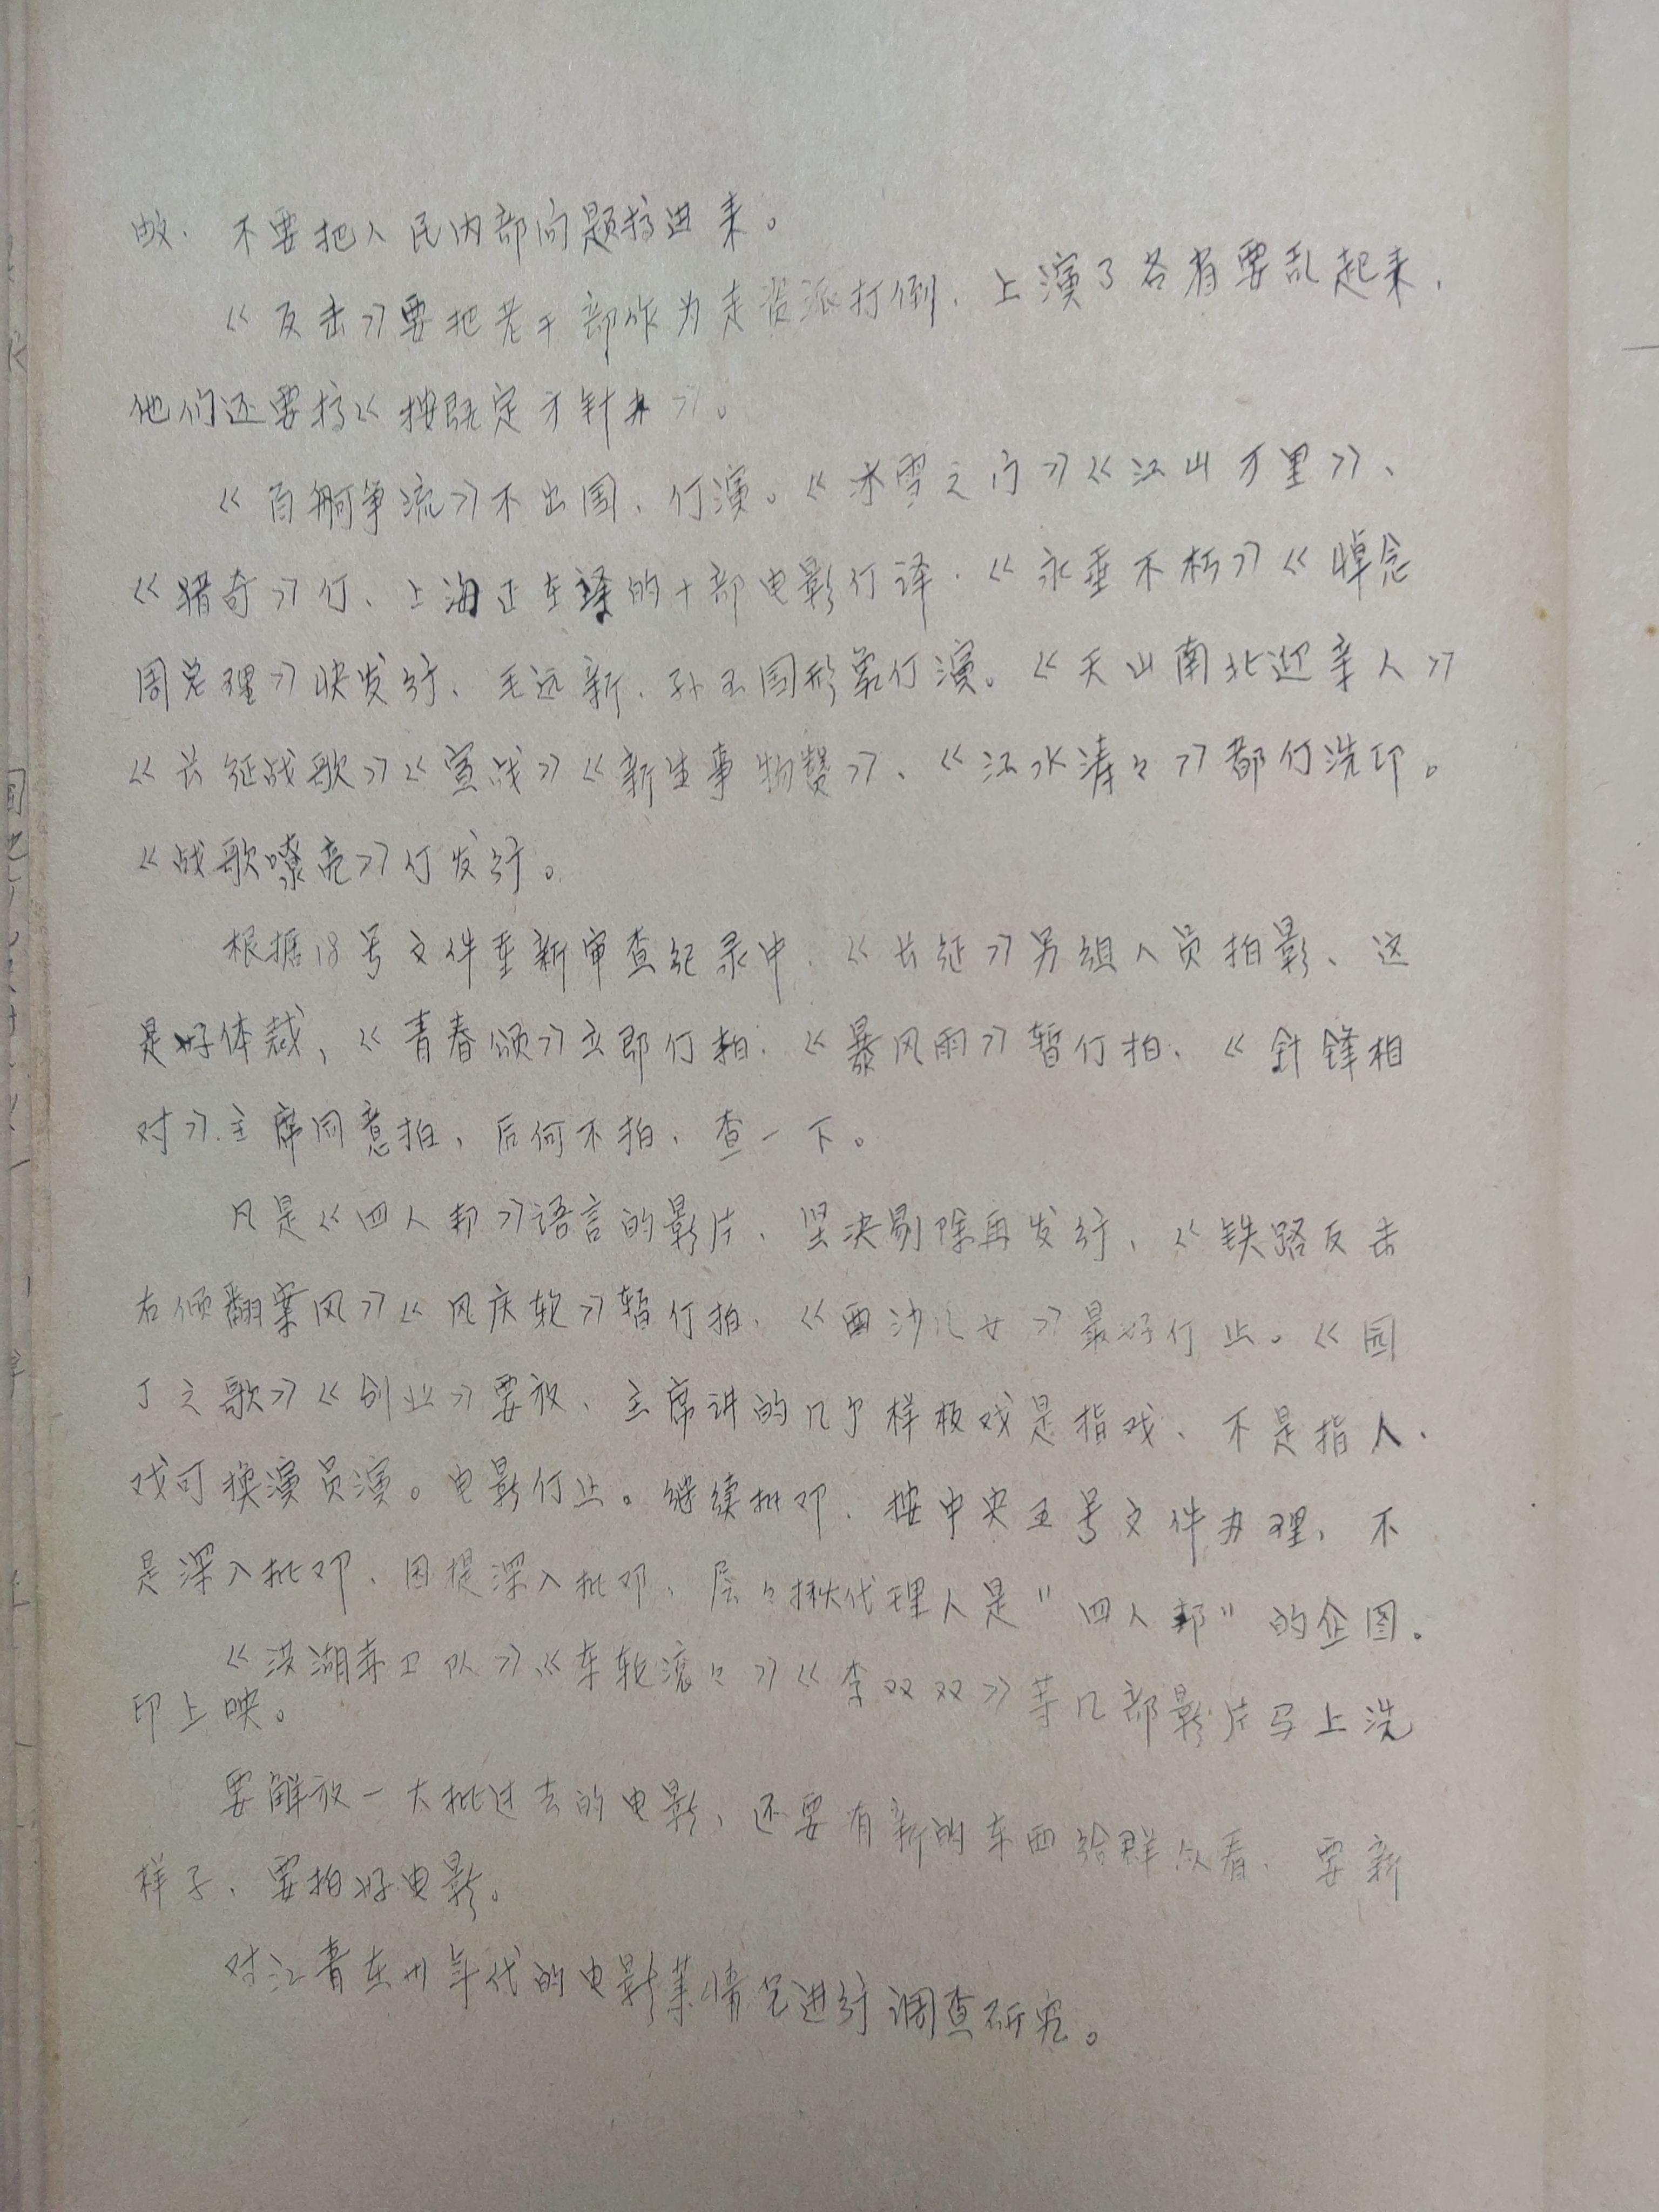 敌，不要把人民内部问题搞进来。
《反击》要把老干部作为走资派打倒，上演了各省要乱起来，
他们还要搞《按既定方针办》。
《百舸争流》不出国，仃演。《冰雪之门》《江山万里》、
《猎奇》仃、上海正在译的十部电影仃译，《永垂不朽》《悼念
周总理》快发行、毛远新、孙玉国形象仃演。《天山南北迎亲人》
《长征战歌》《宣战》《新生事物赞》、《江水清々》都仃洗印。
《战歌嘹亮》仃发行。
根据18号文件重新审查纪录中，《长征》另组人员拍影、这
是好体裁，《青春颂》立即仃拍，《暴风雨》暂仃拍、《针锋相
对》主席同意拍，后何不拍，查一下。
凡是《四人邦》语言的影片、坚决剔除再发行，《铁路反击
右倾翻案风》《风庆轮》暂仃拍，《西沙儿女》最好仃止。《园
丁之歌》《创业》要放、主席讲的几个样板戏是指戏、不是指人，
戏可换演员演。电影仃止。继续批邓，按中央五号文件办理，不
是深入批邓、因提深入批邓，层々揪代理人是"四人邦"的企图。
《洪湖赤卫队》《车轮滚々》《李双双》等几部影片马上洗
印上映。
要解放一大批过去的电影，还要有新的东西给群众看、要新
样子、要拍好电影。
对江青在卅年代的电影业情况进行调查研究。